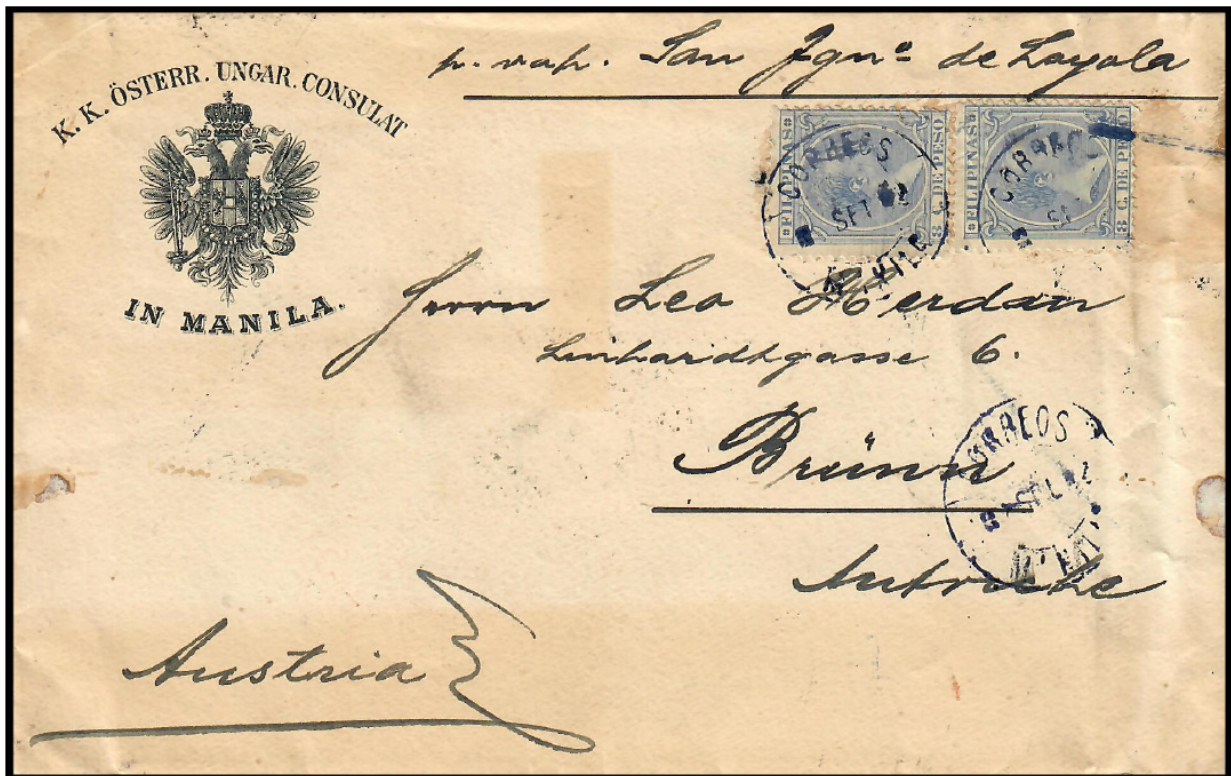 p. vap. San Ign.º de Loyola
K. K. ÖSTERR. UNGAR. CONSULAT
IN MANILA.
FILIPINAS
8 C. DE PESO
FILIPINAS
8 C. DE PE
CORREOS
SET 92
CORREO
Herrn Leo Herdan
Leonhardtgasse 6.
Brünn
CORREOS
Autriche
Austria